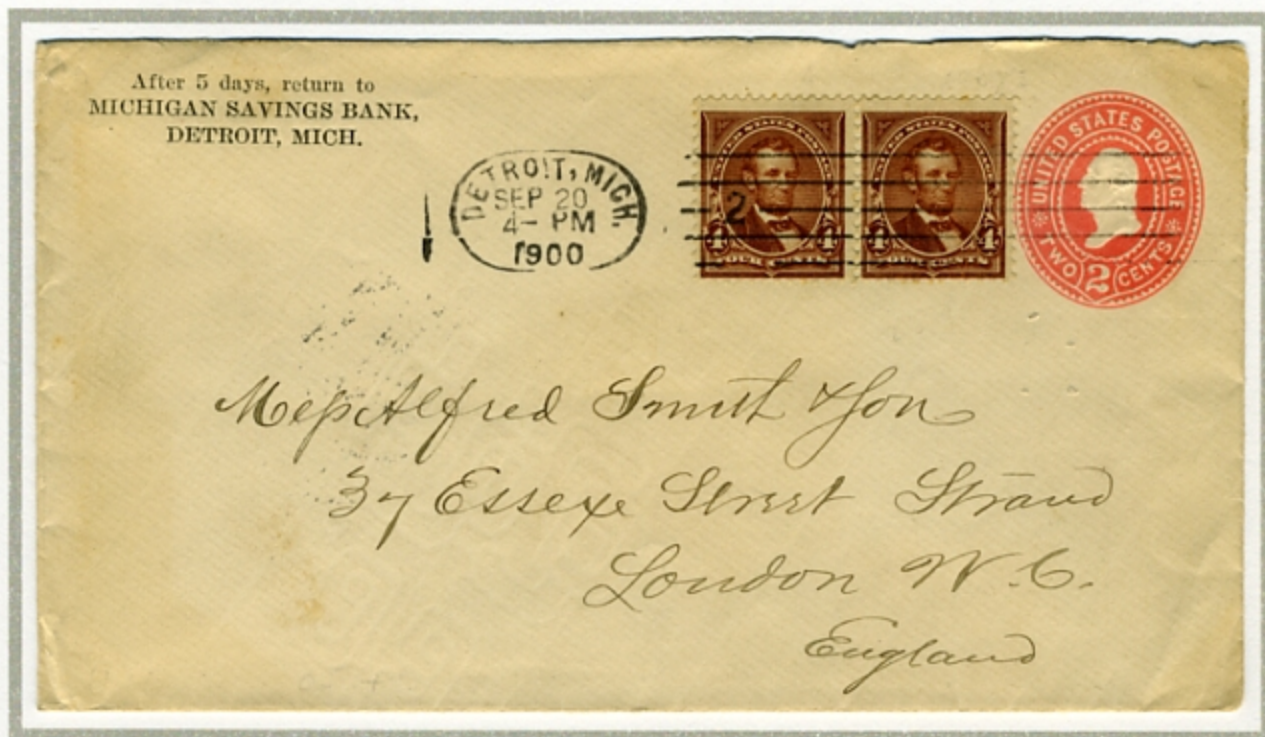 After 5 days, return to
MICHIGAN SAVINGS BANK,
DETROIT, MICH.
DETROIT, MICH.
SEP 20
4- PM
1900
2
UNITED STATES POSTAGE
4 4
FOUR CENTS
UNITED STATES POSTAGE
4 4
FOUR CENTS
UNITED STATES POSTAGE
TWO 2 CENTS
Mess Alfred Smith & Son
37 Essexe Street Strand
London W.C.
England